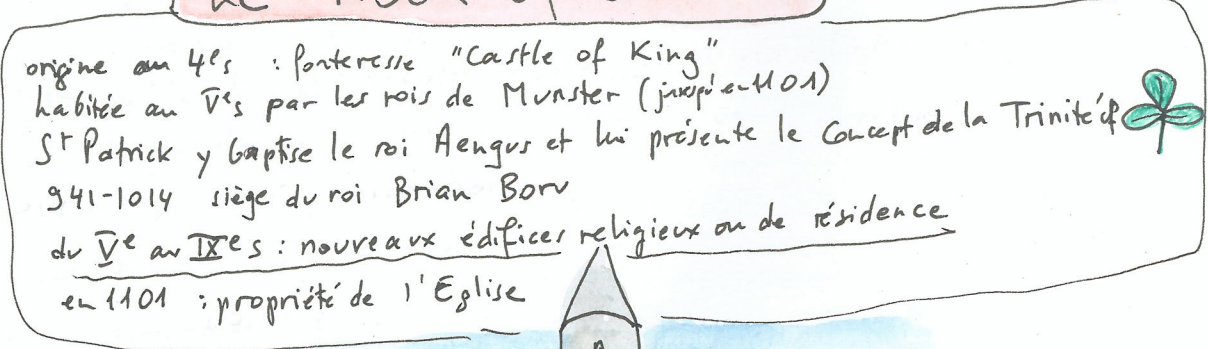 origine au 4es : forteresse "Castle of King"
habitée au Ves par les rois de Munster (jusqu'en 1101)
St Patrick y baptise le roi Aengus et lui présente le Concept de la Trinité cf
941-1014 siège du roi Brian Boru
du Ve au IXes : nouveaux édifices religieux ou de résidence
en 1101 : propriété de l'Eglise